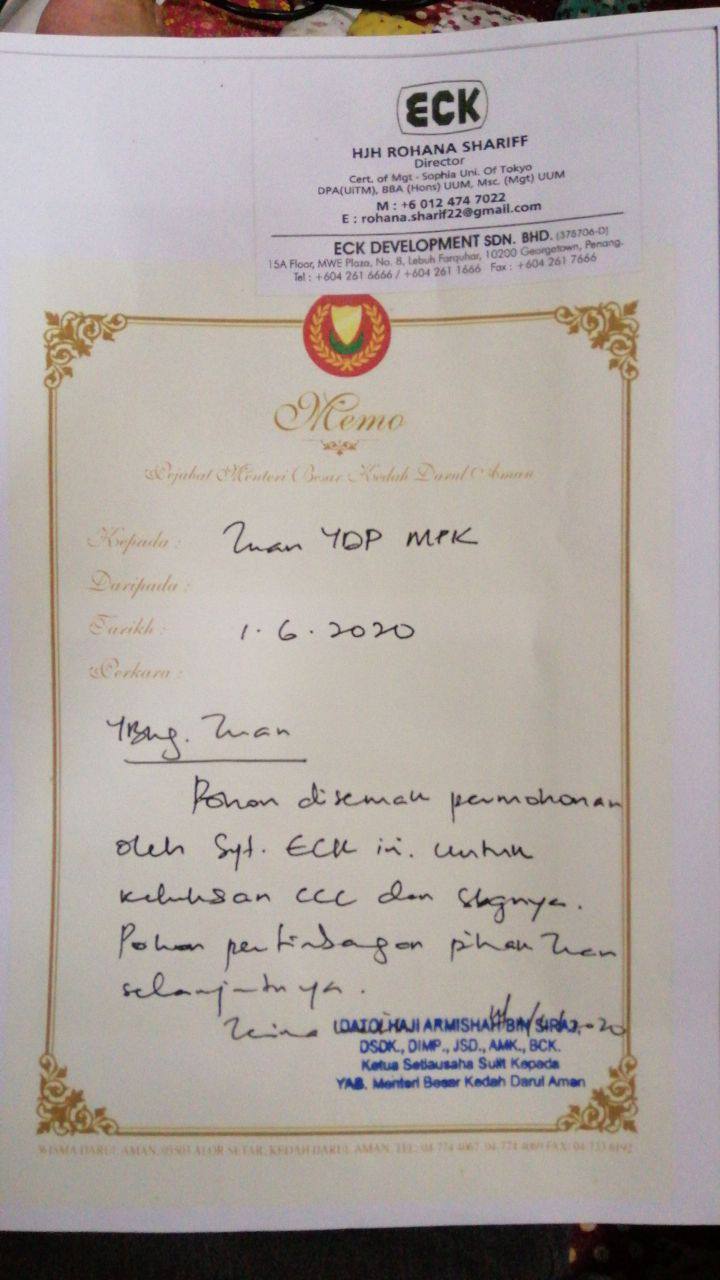 ECK
HJH ROHANA SHARIFF
Director
Cert. of Mgt - Sophia Uni. Of Tokyo
DPA(UiTM), BBA (Hons) UUM, Msc. (Mgt) UUM
M : +6 012 474 7022
E : rohana.sharif22@gmail.com
ECK DEVELOPMENT SDN. BHD. (378706-D)
15A Floor, MWE Plaza, No. 8, Lebuh Farquhar, 10200 Georgetown, Penang.
Tel : +604 261 6666 / +604 261 1666 Fax : +604 261 7666
Memo
Pejabat Menteri Besar Kedah Darul Aman
Kepada : Tuan YDP MPK
Daripada :
Tarikh : 1.6.2020
Perkara :
YBhg. Tuan
Pohon disemak permohonan
oleh Syt. ECK ini. untuk
kelulusan CCC dan sbgnya.
Pohon pertimbangan pihak Tuan
selanjutnya.
DATO' HAJI ARMISHAH BIN SIRAJ,
DSDK., DIMP., JSD., AMK., BCK.
Ketua Setiausaha Sulit Kepada
YAB. Menteri Besar Kedah Darul Aman
WISMA DARUL AMAN, 05503 ALOR SETAR, KEDAH DARUL AMAN. TEL: 04-774 4067, 04-774 4069 FAX: 04-733 6192